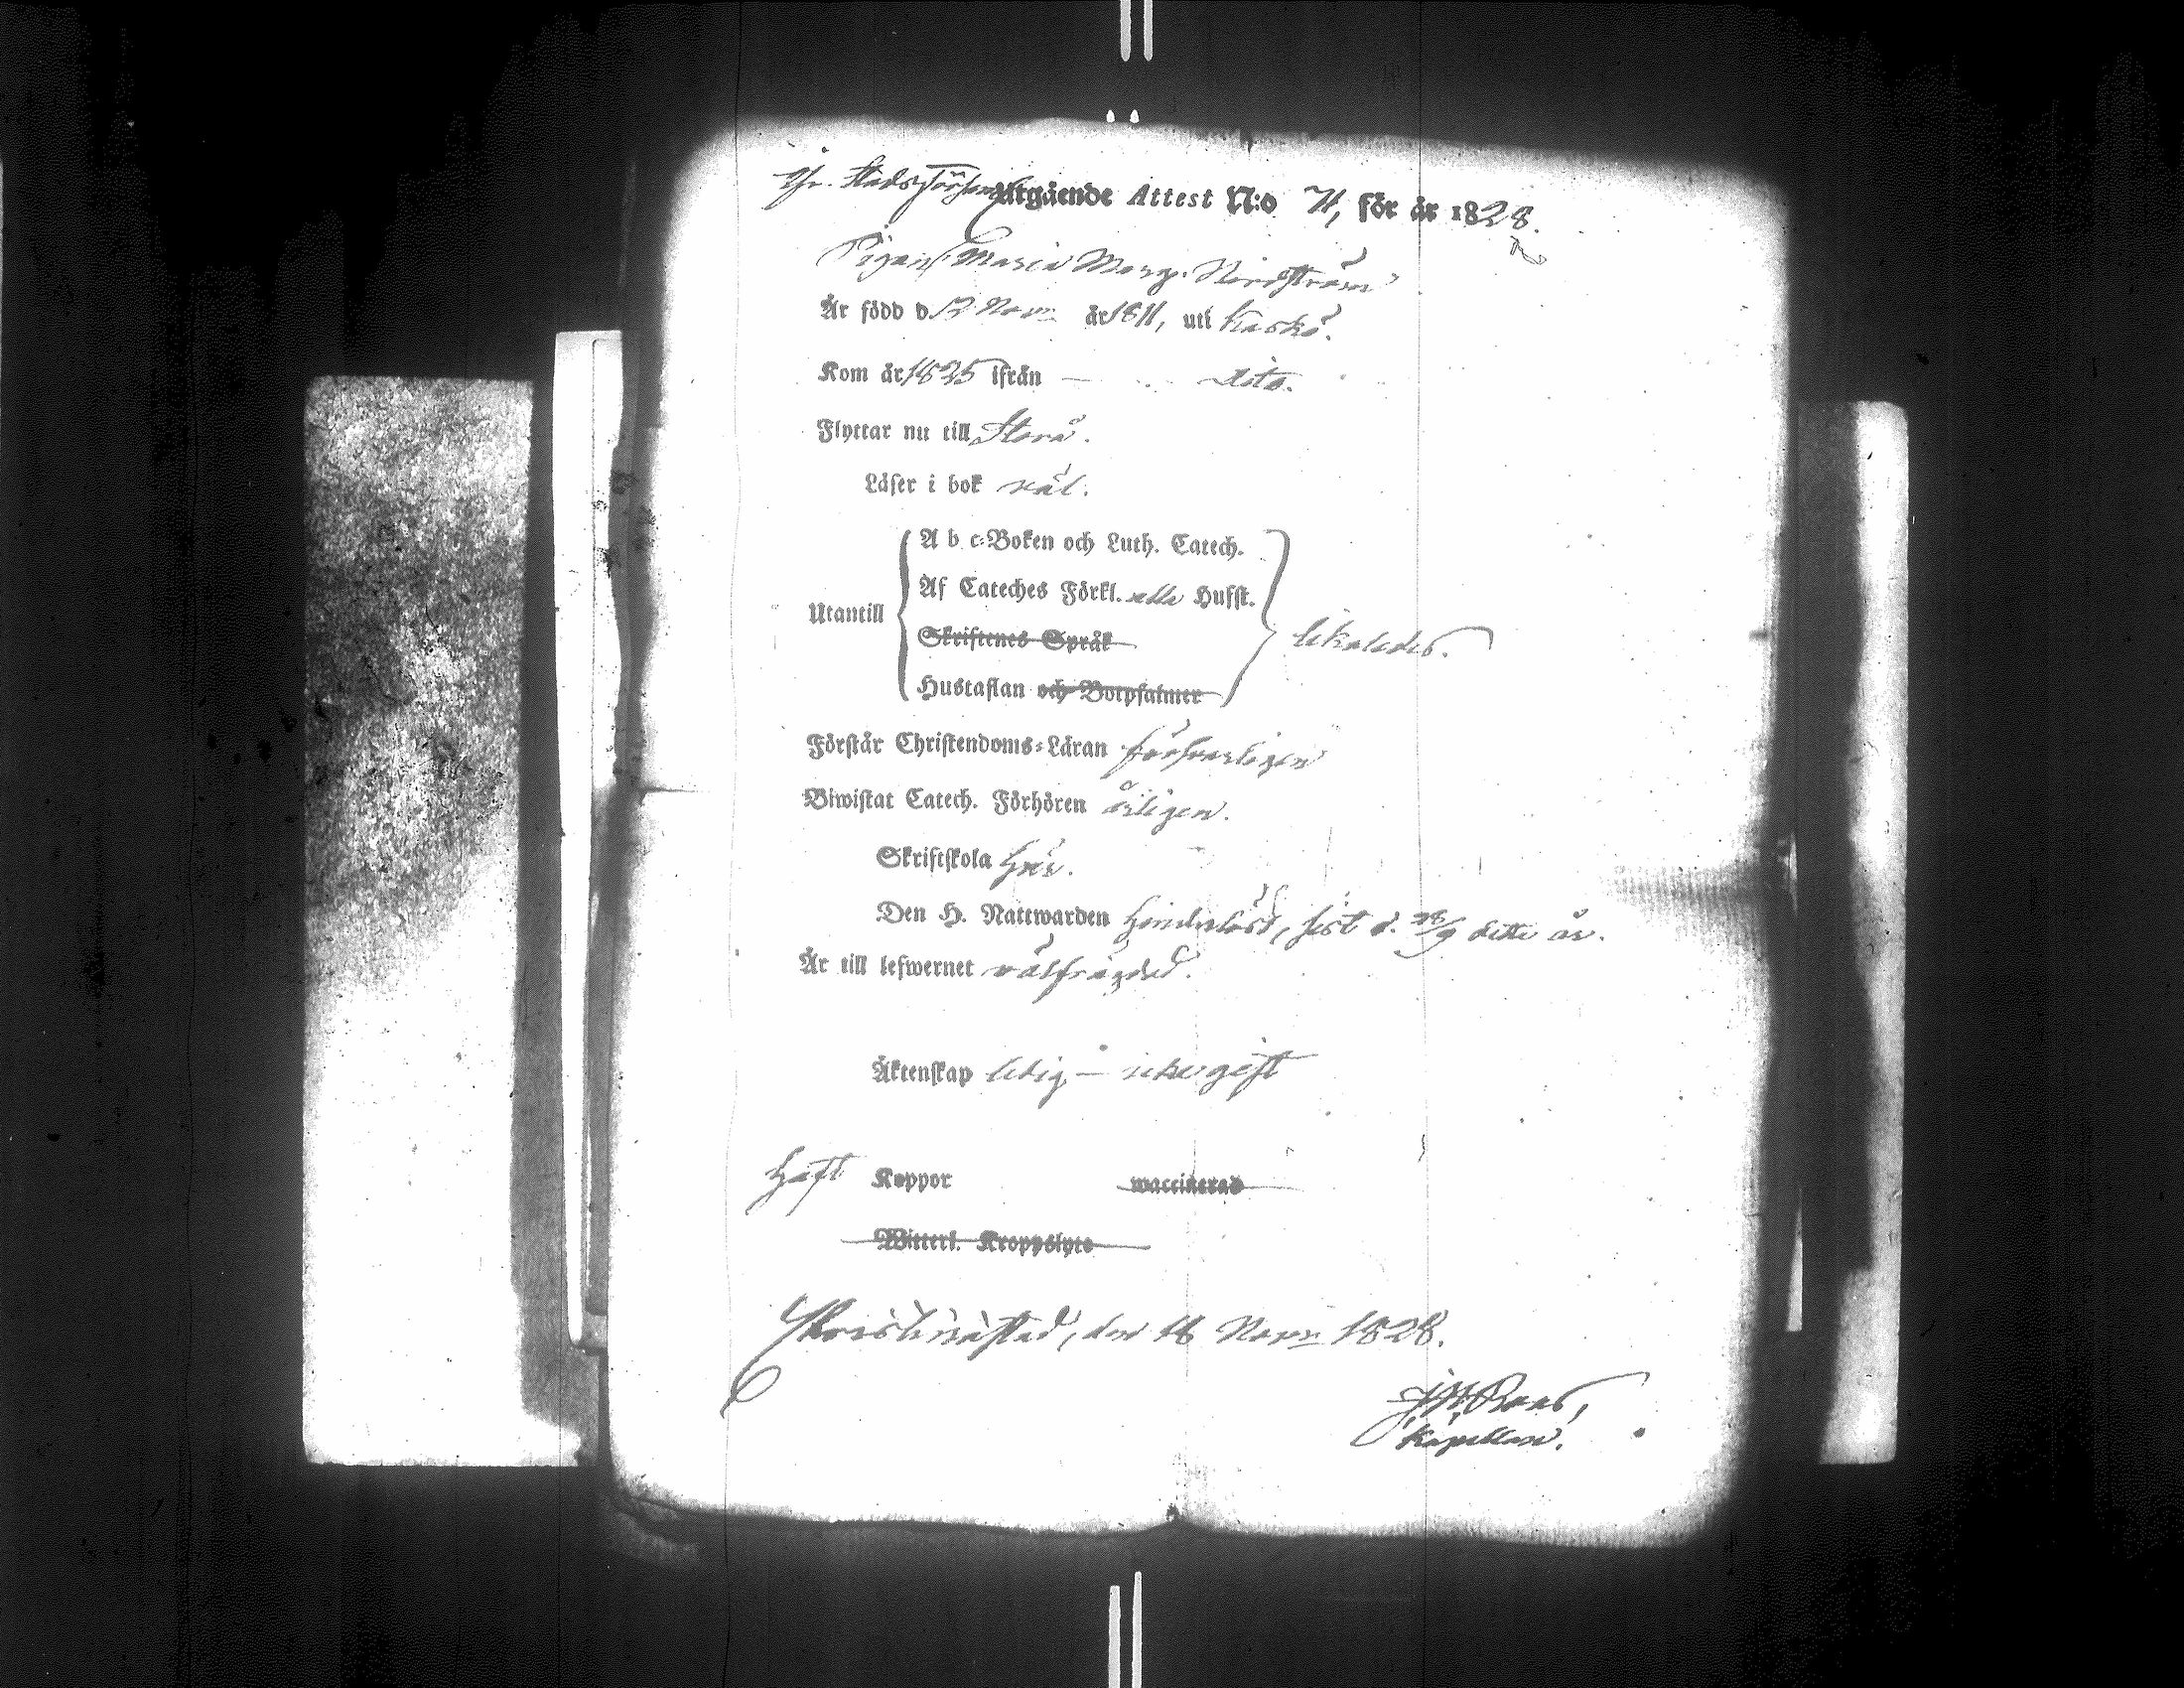 fr. Stadsförsaml.
Utgående Attest N:o 71, för år 1828.
Pigan Maria Marg. Nordström
Är född d. 12 Nov. år 1811, uti Kaskö.
Kom år 1825 ifrån — dito.
Flyttar nu till Storå.
Läser i bok väl.
A b c-Boken och Luth. Catech.
Af Cateches Förkl. alla Hufst.
Utantill
Skriftenes Språk
likaledes.
Hustaflan och Botpsalmer
Förstår Christendoms-Läran försvarligen
Biwistat Catech. Förhören årligen.
Skriftskola här.
Den H. Nattwarden hinderlöst, sist d. 28/9 detta år.
Är till lefwernet välfrägdad.
Äktenskap ledig — icke gift
haft Koppor waccinerad
Witterl. Kroppslyte
Christinæstad, den 18 Novr 1828.
Kapellan.